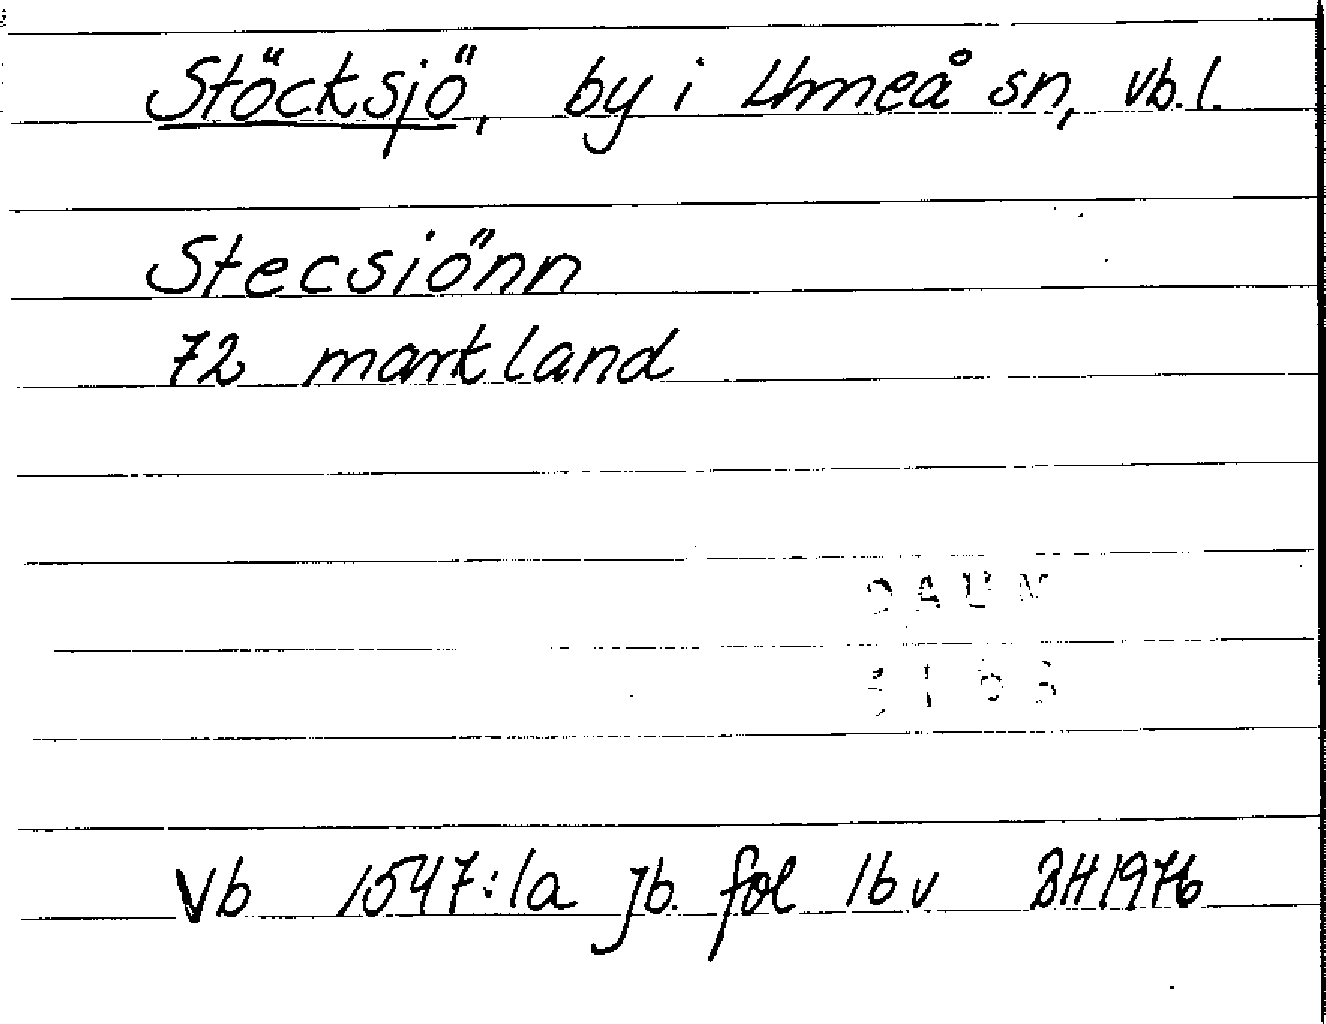 Stöcksjö, by i Umeå sn, vb. l.
Stecsiönn
72 markland
DAUM
Vb 1547:1a jb. fol 16 v BH 1976